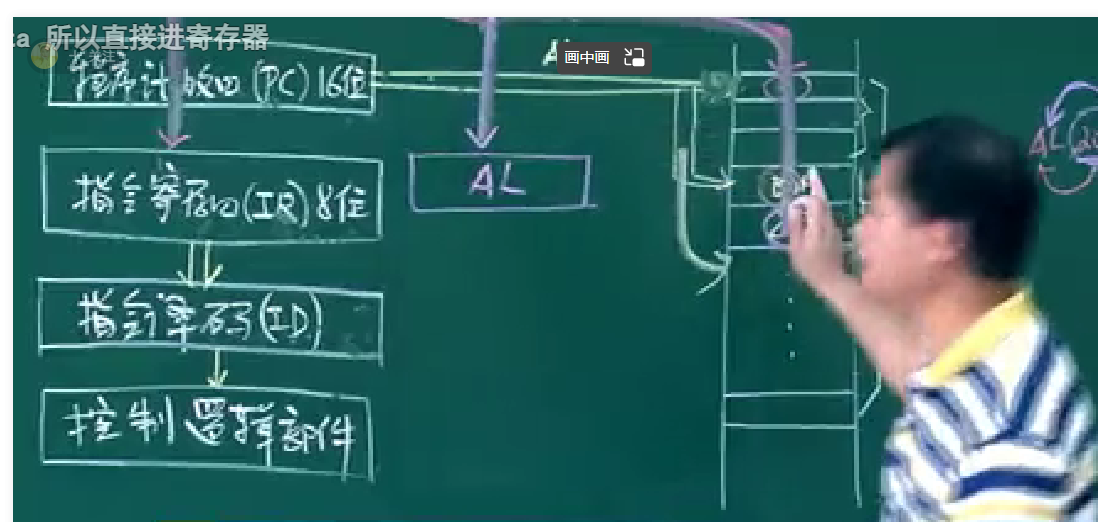 ta 所以直接进寄存器
画中画
程序计数器(PC)16位
指令寄存器(IR)8位
AL
AL
指令译码(ID)
控制逻辑部件